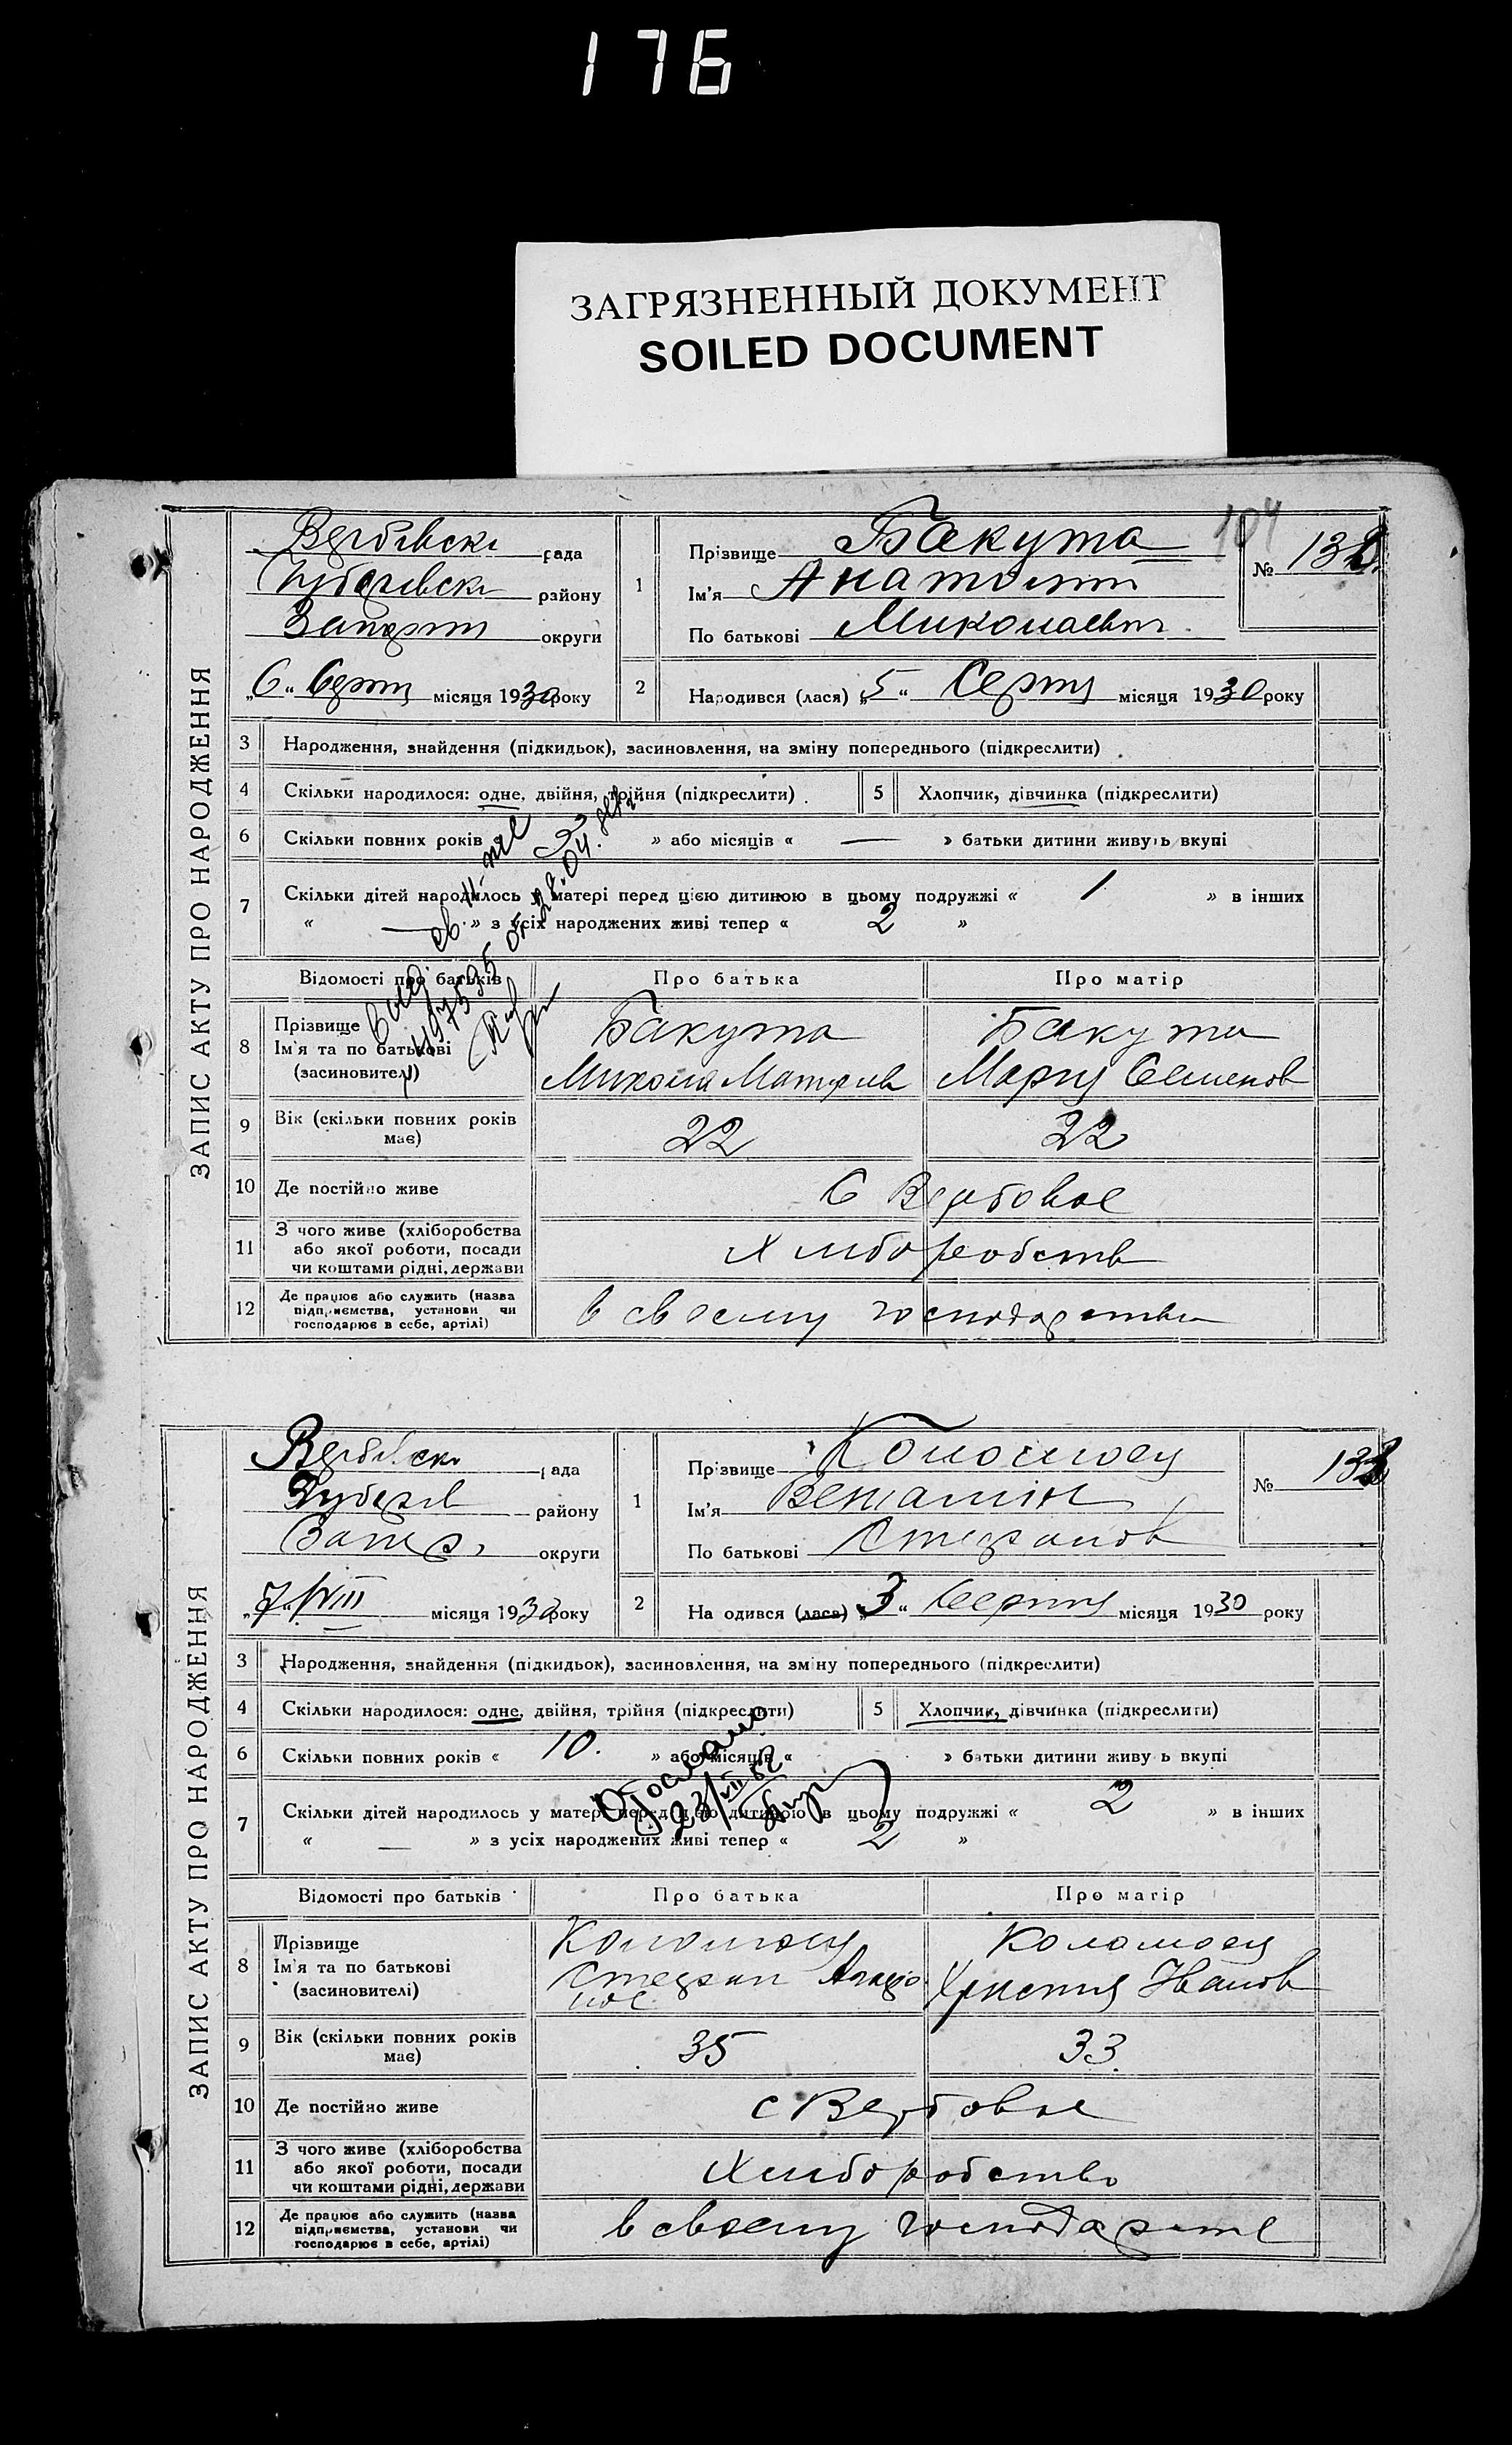 176
ЗАГРЯЗНЕННЫЙ ДОКУМЕНТ
SOILED DOCUMENT
104
ЗАПИС АКТУ ПРО НАРОДЖЕННЯ
Вербівськ рада
району
округи
„6“ Серпн місяця 1930 року
1 Прізвище Бакута
Ім'я Анатолій
По батькові Миколаевич
№ 132
2 Народився (лася) „5“ Серпня місяця 1930 року
3 Народження, знайдення (підкидьок), засиновлення, на зміну попереднього (підкреслити)
4 Скільки народилося: одне, двійня, трійня (підкреслити)
5 Хлопчик, дівчинка (підкреслити)
6 Скільки повних років « 2 » або місяців « — » батьки дитини живуть вкупі
7 Скільки дітей народилось у матері перед цією дитиною в цьому подружжі « 1 » в інших
« — » з усіх народжених живі тепер « 2 »
Відомості про батьків Про батька Про матір
8 Прізвище Бакута Бакута
Ім'я та по батькові
(засновителі) Микола Марія Семенов
9 Вік (скільки повних років має) 22 22
10 Де постійно живе С Вербовое
11 З чого живе (хліборобства
або якої роботи, посади
чи коштами рідні, держави Хліборобств
12 Де працює або служить (назва
підприємства, установи чи
господарює в себе, артілі) в своему господарстви
ЗАПИС АКТУ ПРО НАРОДЖЕННЯ
Вербівськ рада
району
округи
„7“ VIII місяця 1930 року
1 Прізвище Коломоец
Ім'я Веніамін
По батькові Стефанов
№ 133
2 Народився (лася) „3“ Серпня місяця 1930 року
3 Народження, знайдення (підкидьок), засиновлення, на зміну попереднього (підкреслити)
4 Скільки народилося: одне, двійня, трійня (підкреслити)
5 Хлопчик, дівчинка (підкреслити)
6 Скільки повних років « 10. » або місяців « » батьки дитини живуть вкупі
7 Скільки дітей народилось у матері перед цією дитиною в цьому подружжі « 2 » в інших
« — » з усіх народжених живі тепер « 2 »
Відомості про батьків Про батька Про матір
8 Прізвище Коломоец Коломоец
Ім'я та по батькові
(засиновителі) Стефан Христия Иванов
9 Вік (скільки повних років має) 35 33
10 Де постійно живе с Вербовое
11 З чого живе (хліборобства
або якої роботи, посади
чи коштами рідні, держави Хліборобство
12 Де працює або служить (назва
підприємства, установи чи
господарює в себе, артілі) в своему